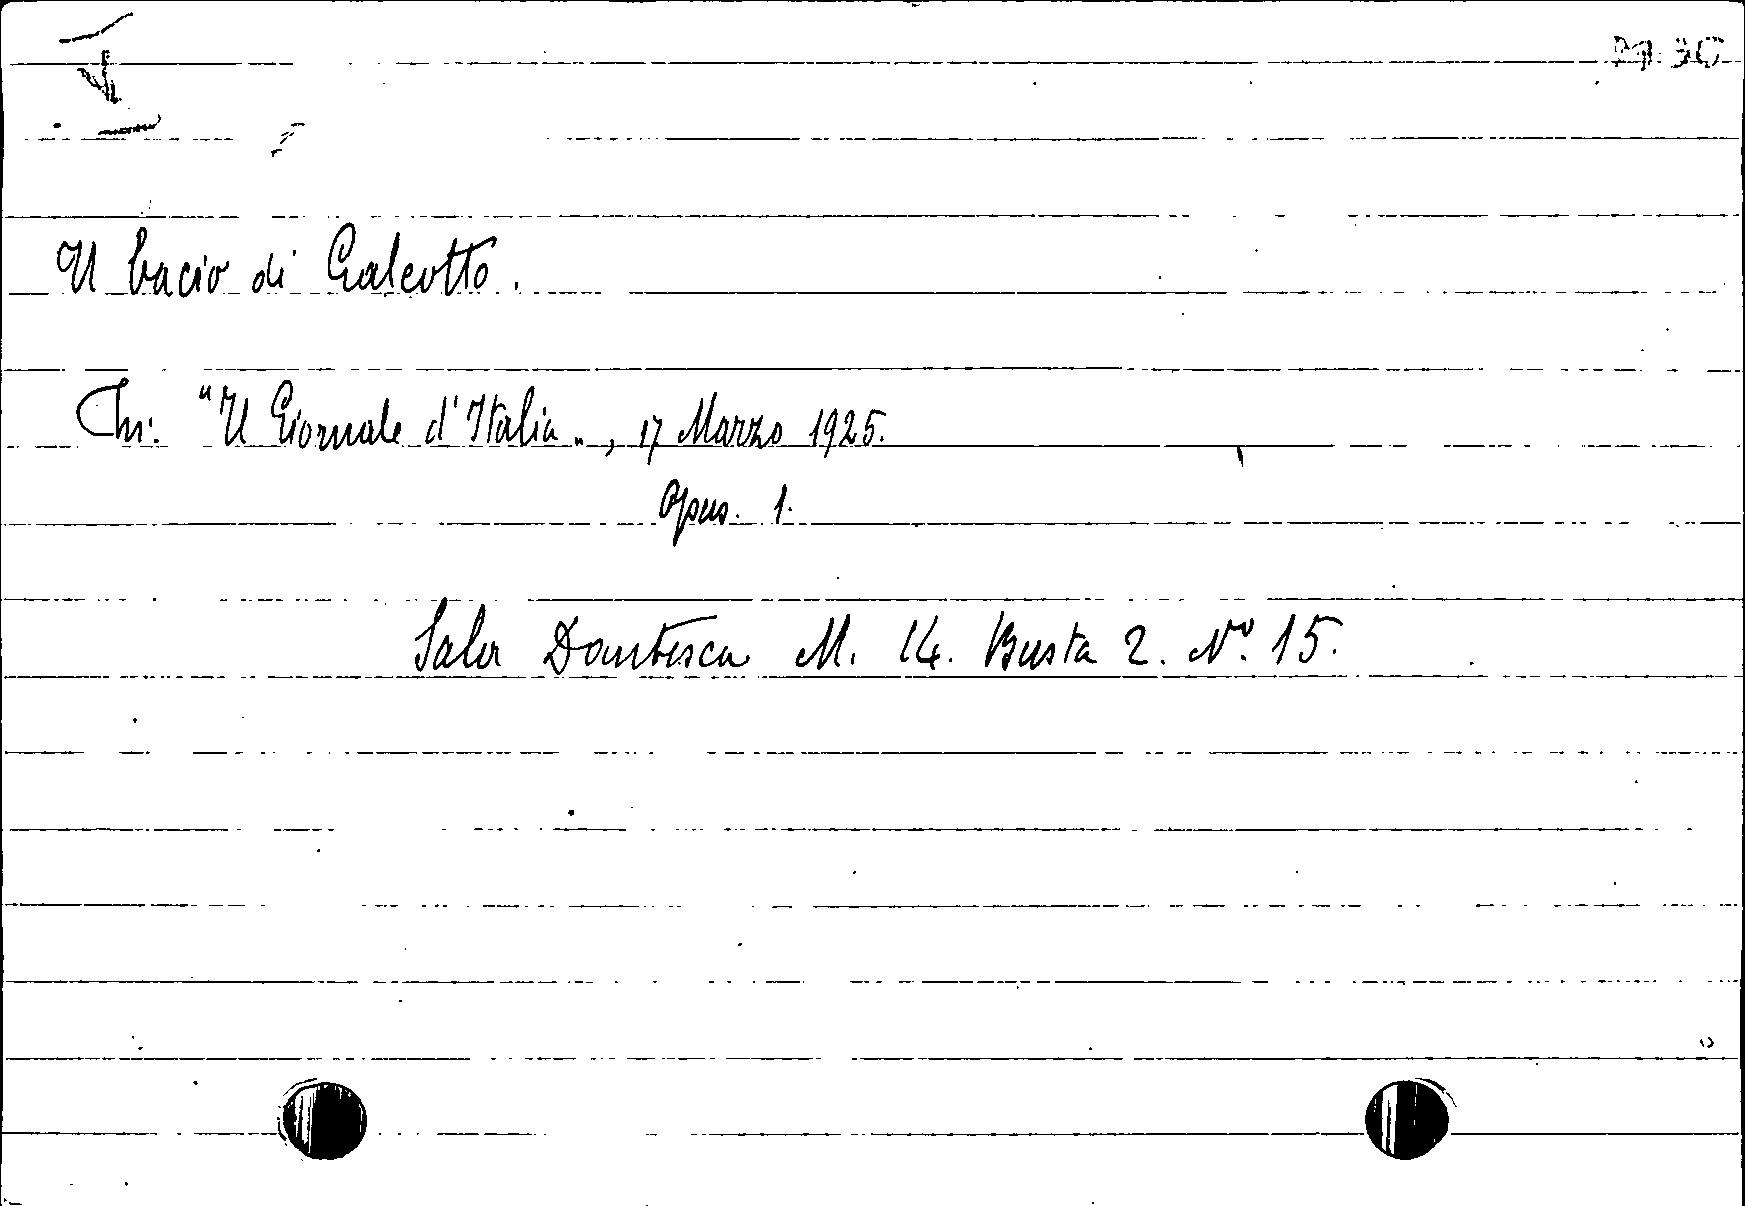 Il bacio di Galeotto.
In: "Il Giornale d'Italia", 17 Marzo 1925.
Opus. 1.
Sala Dantesca M. 14. Busta 2. N.º 15.